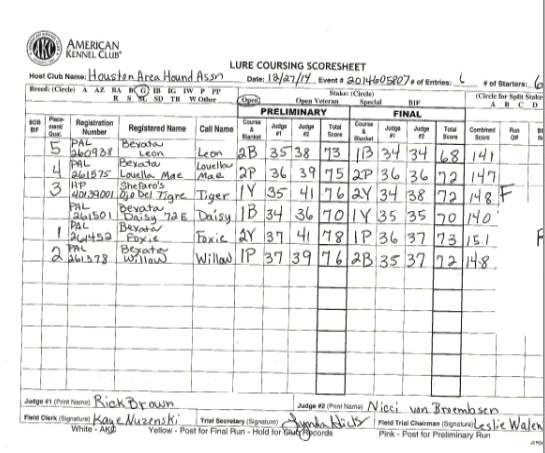 AMERICAN
KENNEL CLUB
LURE COURSING SCORESHEET
Host Club Name: Houston Area Hound Assn Date: 12/27/14 Event # 2014605807 # of Entries: 6 # of Starters: 6
Breed: (Circle) A AZ BA B G IB IG IW P PP
R S SL SD TR W Other
Stake: (Circle) (Circle for Split Stake
Open Open Veteran Special BIF A B C D
PRELIMINARY FINAL
BOB BIF Placement/Qual. Registration Number Registered Name Call Name Course & Blanket Judge #1 Judge #2 Total Score Course & Blanket Judge #1 Judge #2 Total Score Combined Score Run Off
5 PAL 260938 Bexata Leon Leon 2B 35 38 73 1B 34 34 68 141
4 PAL 261575 Bexata Louella Mae Louella Mae 2P 36 39 75 2P 36 36 72 147
3 HP 40139001 Shefaro's Ojo Del Tigre Tiger 1Y 35 41 76 2Y 34 38 72 148 F
PAL 261501 Bexata Daisy 72E Daisy 1B 34 36 70 1Y 35 35 70 140
1 PAL 261452 Bexata Foxie Foxie 2Y 37 41 78 1P 36 37 73 151
2 PAL 261378 Bexata Willow Willow 1P 37 39 76 2B 35 37 72 148
Judge #1 (Print Name) Rick Brown Judge #2 (Print Name) Nicci von Broembsen
Field Clerk (Signature) Kaye Nuzenski Trial Secretary (Signature) Lynda Hicks Field Trial Chairman (Signature) Leslie Walen
White - AKC Yellow - Post for Final Run - Hold for Club Records Pink - Post for Preliminary Run